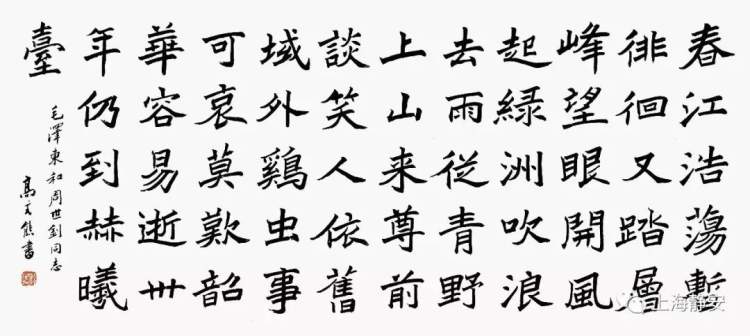 春江浩蕩暫
徘徊又踏層
峰望眼開風
起綠洲吹浪
去雨從青野
上山来尊前
談笑人依舊
域外鷄虫事
可哀莫歎韶
華容易逝卅
年仍到赫曦
臺
毛澤東和周世釗同志
高式熊書
上海静安